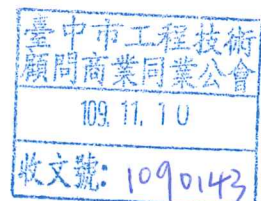 臺中市工程技術
顧問商業同業公會
109. 11. 10
收文號: 1090143